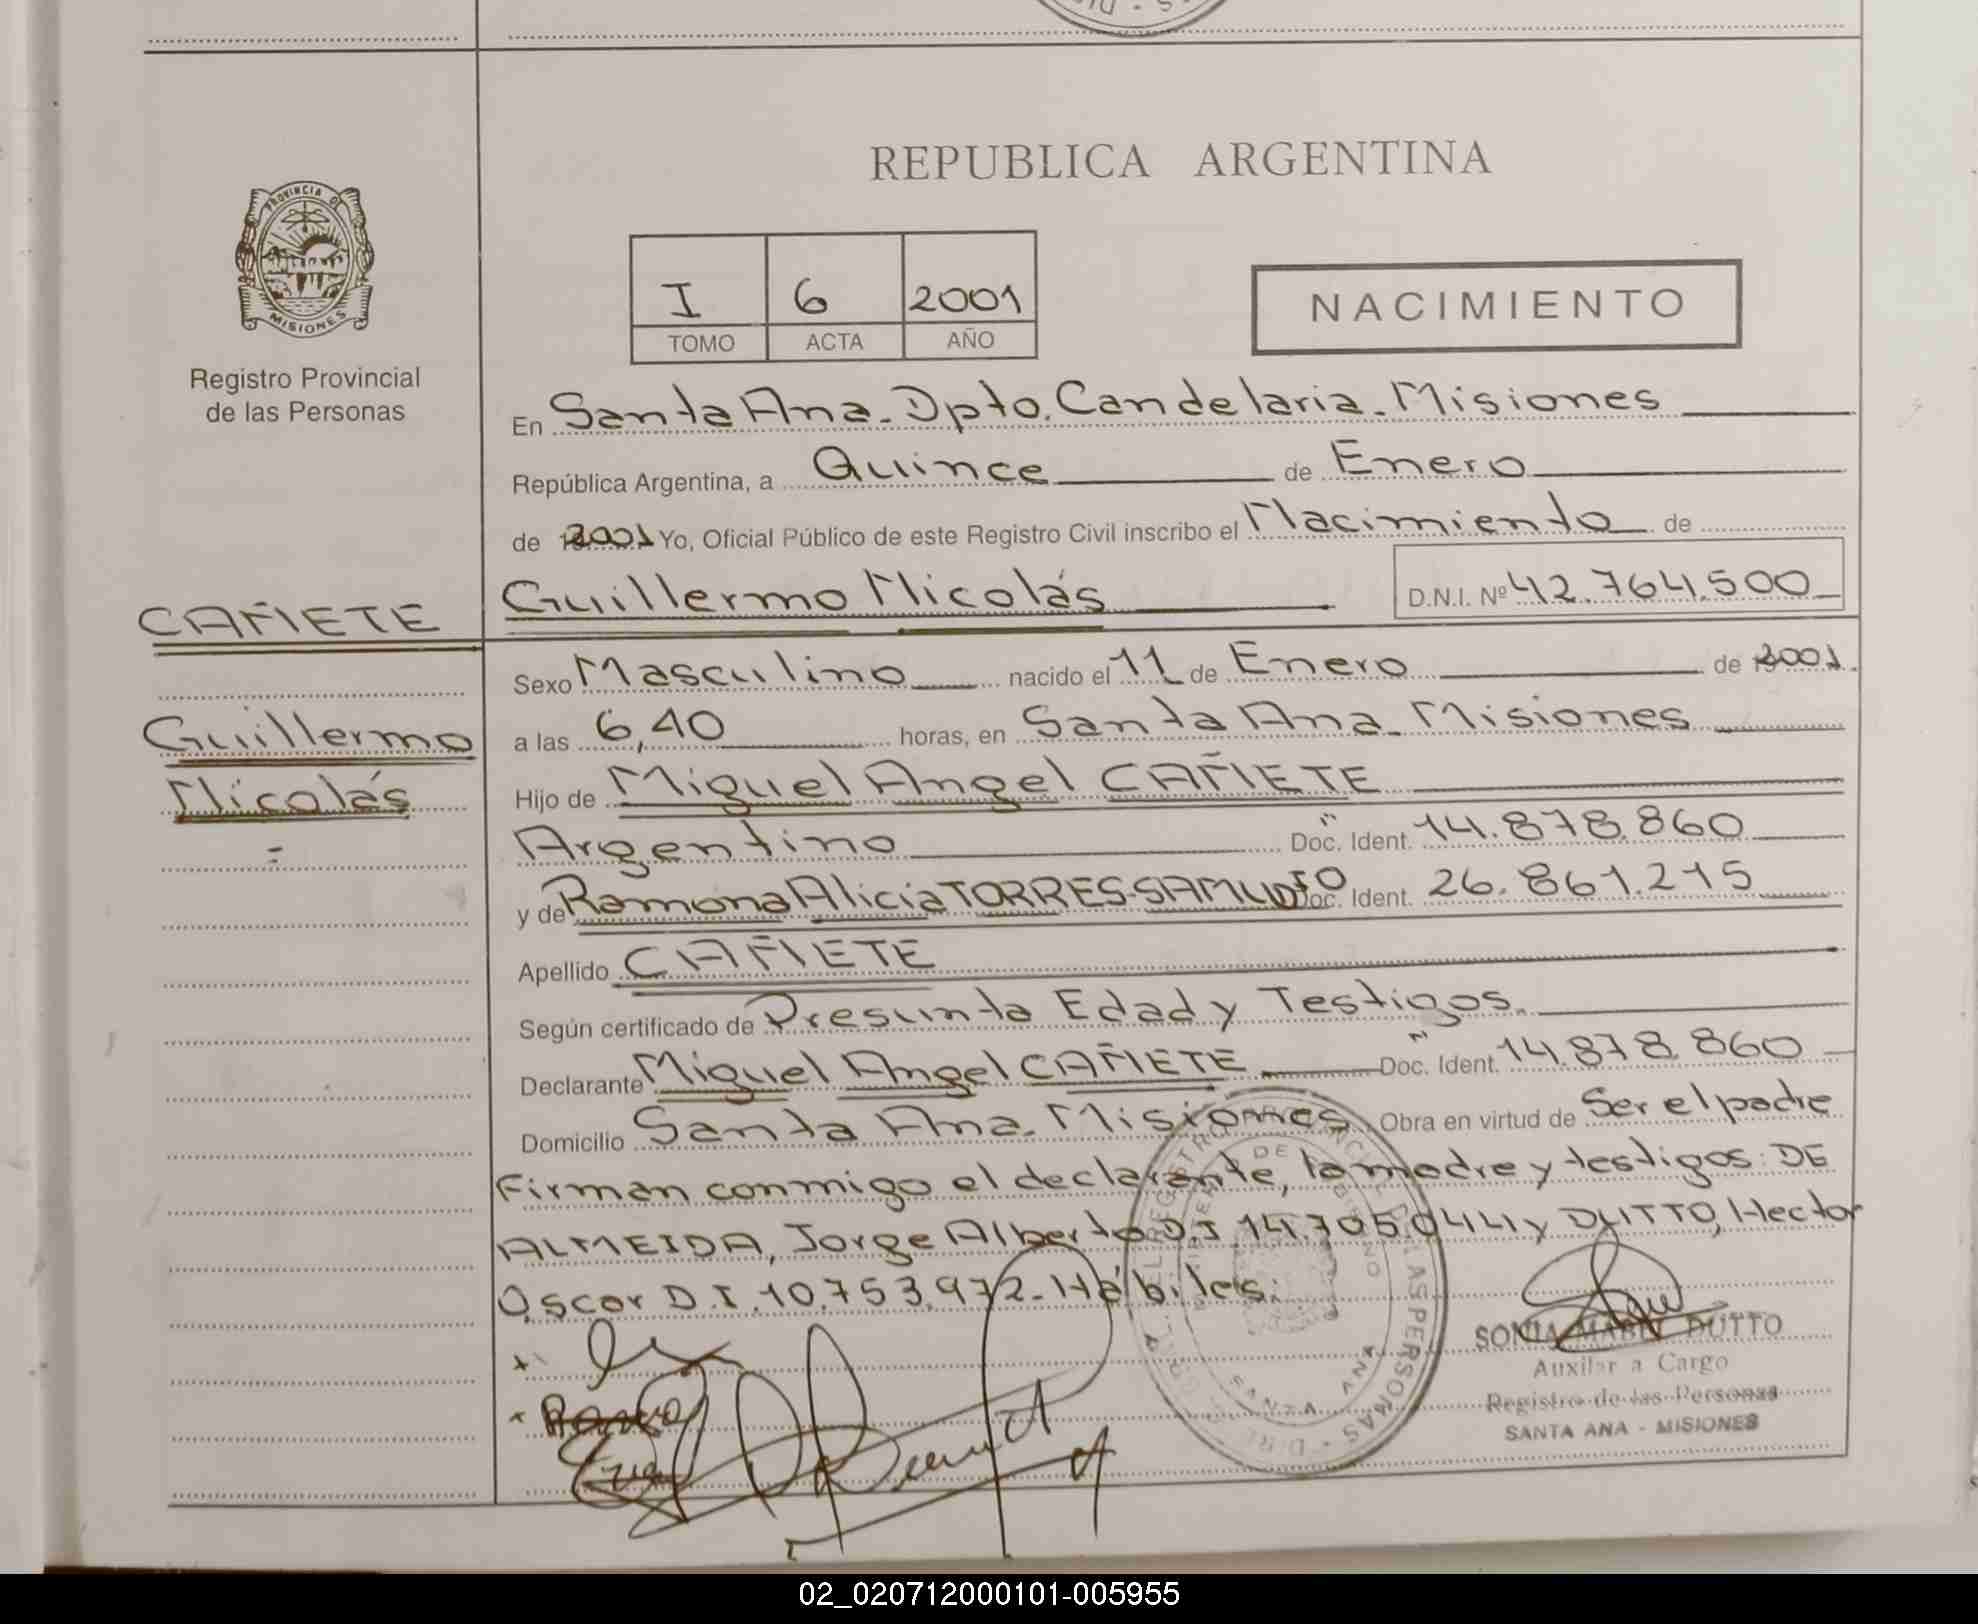 REPUBLICA ARGENTINA
PROVINCIA DE
MISIONES
Registro Provincial
de las Personas
I 6 2001
TOMO ACTA AÑO
NACIMIENTO
En Santa Ana. Dpto. Candelaria. Misiones
República Argentina, a Quince de Enero
de 2001 Yo, Oficial Público de este Registro Civil inscribo el Nacimiento de
CAÑETE
Guillermo Nicolás D.N.I. Nº 42.764.500
Guillermo
Nicolás
Sexo Masculino nacido el 11 de Enero de 2001.
a las 6,40 horas, en Santa Ana. Misiones
Hijo de Miguel Angel CAÑETE
Argentino Doc. Ident. 14.878.860
y de Ramona Alicia TORRES SAMUDIO Doc. Ident. 26.861.215
Apellido CAÑETE
Según certificado de Presunta Edad y Testigos.
Declarante Miguel Angel CAÑETE Doc. Ident. 14.878.860
Domicilio Santa Ana. Misiones Obra en virtud de Ser el padre
Firman conmigo el declarante, la madre y testigos: DE
ALMEIDA, Jorge Alberto D.I. 14.705.044 y DUTTO, Hector
Oscar D.I. 10.753.972. Hábiles.
SONIA MABEL DUTTO
Auxiliar a Cargo
Registro de las Personas
SANTA ANA - MISIONES
02_020712000101-005955